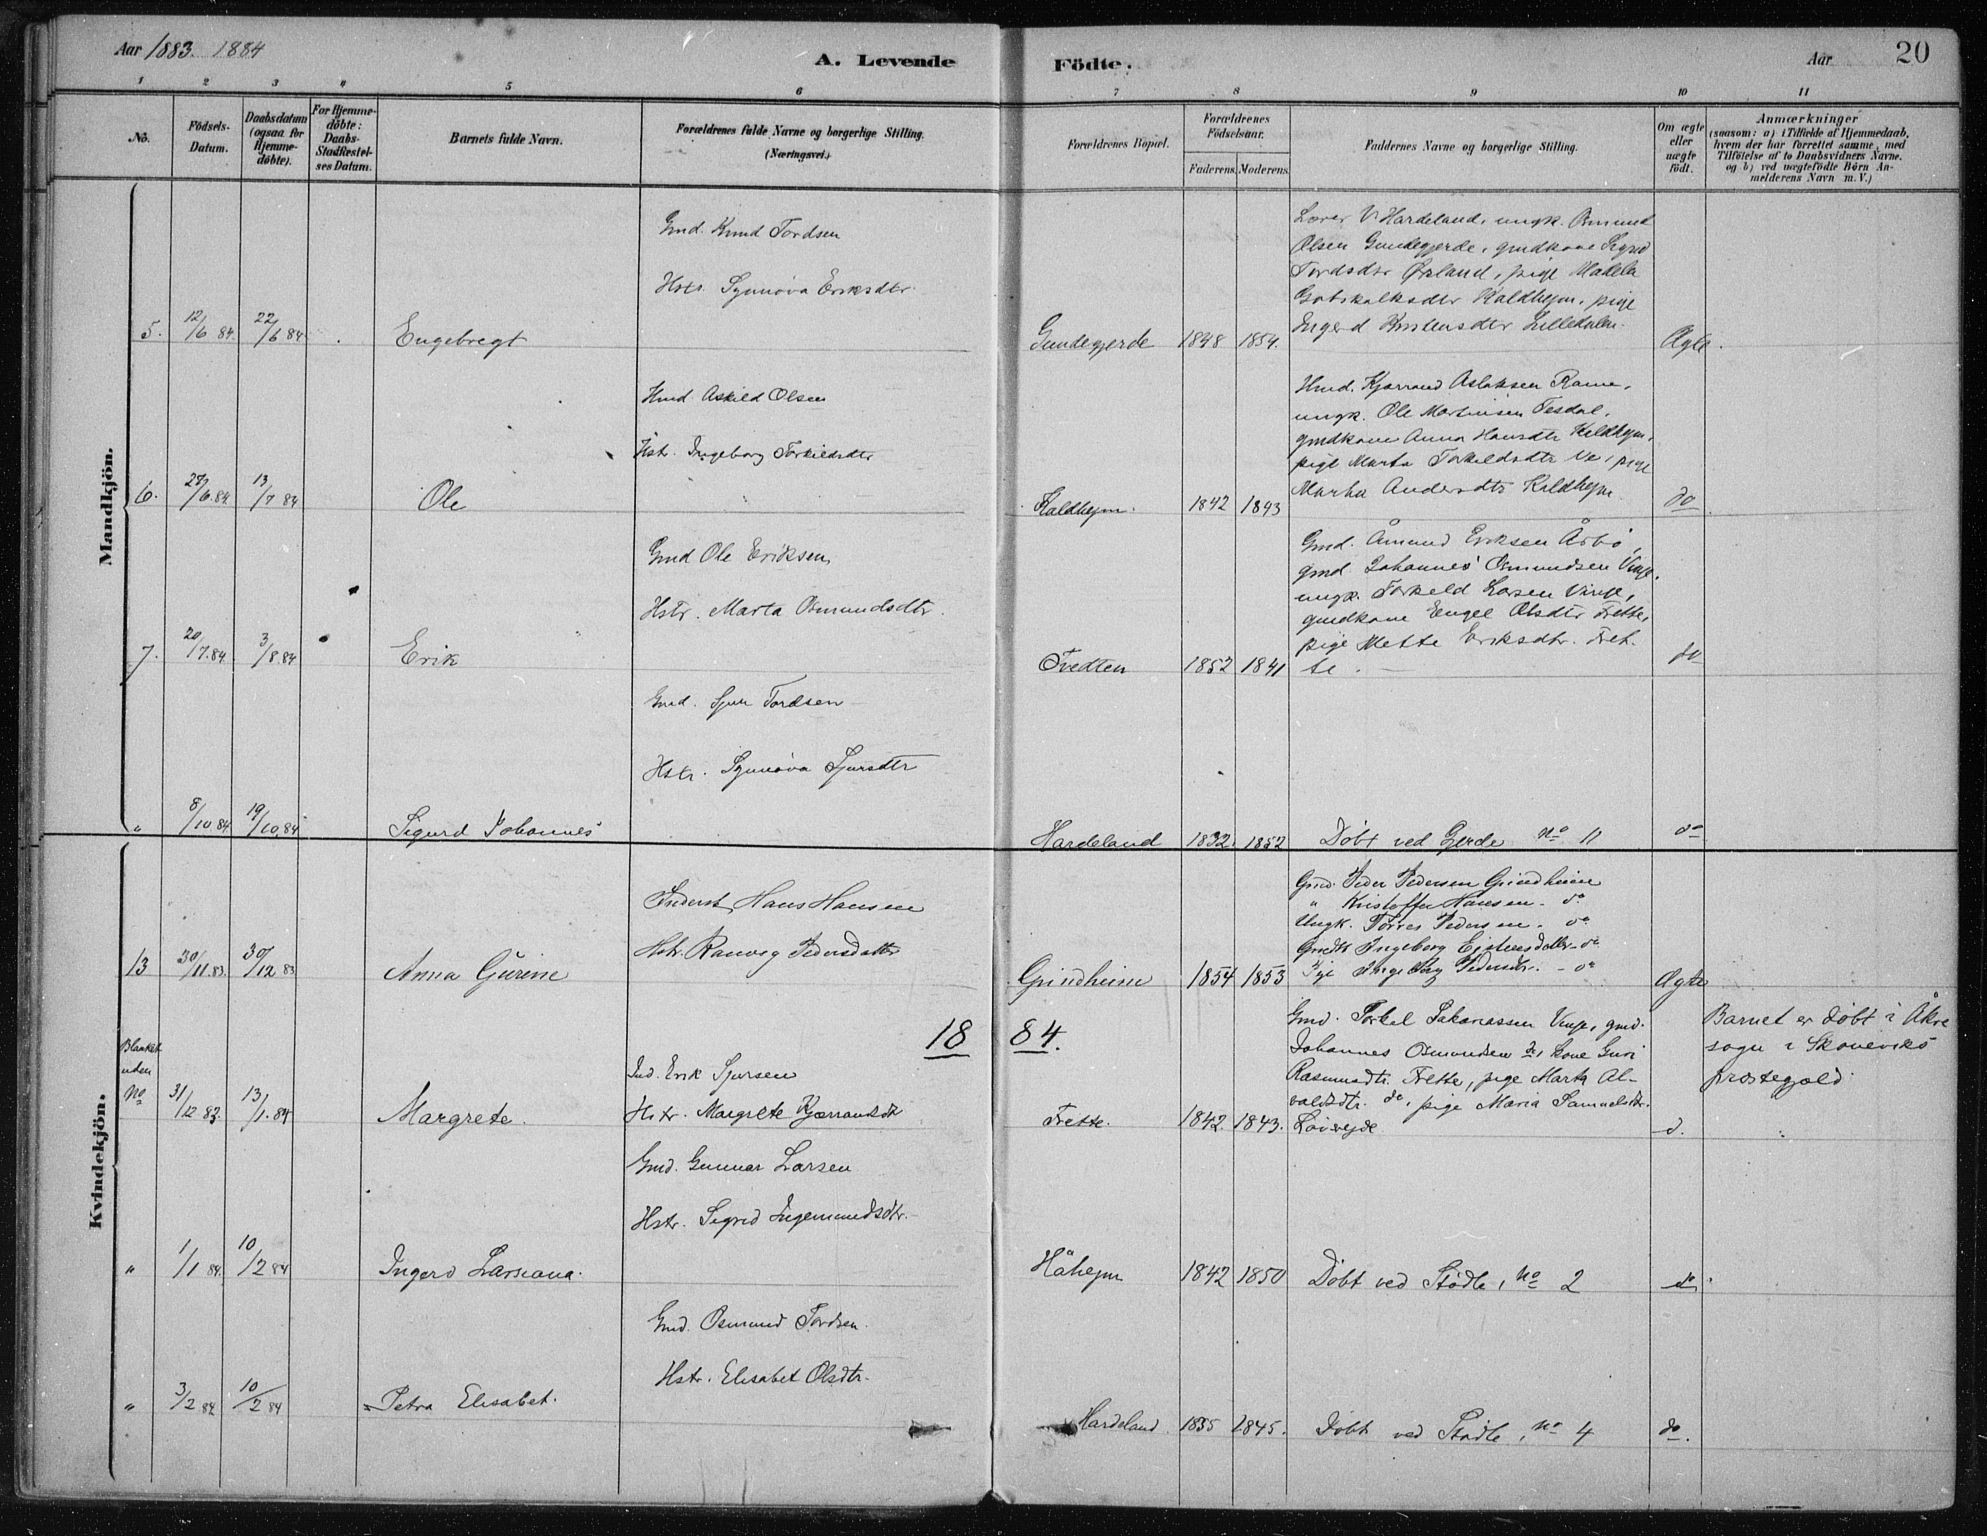 Aar 1883. 1884
A. Levende Födte.
Aar
20
1 2 3 4 5 6 7 8 9 10 11
No.
Födsels-Datum.
Daabsdatum (ogsaa for Hjemme-döbte).
For Hjemme-döbte: Daabs-Stadfæstel-ses Datum.
Barnets fulde Navn.
Forældrenes fulde Navne og borgerlige Stilling.
(Næringsvei.)
Forældrenes Bopæl.
Forældrenes Födselsaar.
Faderens. Moderens.
Faddernes Navne og borgerlige Stilling.
Om ægte eller uægte födt.
Anmærkninger
(saasom: a) i Tilfælde af Hjemmedaab, hvem der har forrettet samme, med Tilföielse af to Daabsvidners Navne, og b) ved uægtefödte Börn An-melderens Navn m. V.)
Mandkjön.
5. 12/6 84. 22/6 84 Engebregt
Gmd. Knud Tordsen
Hstr. Synnøva Eriksdtr.
Gundegjerde 1848 1854.
Lærer V. Hardeland, ungk. Osmund
Olsen Gundegjerde, gmdkone Sigrid
Tordsdtr Ørland, pige Madela
Gotskalksdtr Kaldhejm, pige
Ingerd Lilledalen.
Ægte.
6. 13/7 84 Ole
Hmd Askild Olsen
Hstr. Ingeborg Torkildsdtr
Kaldhejm. 1842 1843
Hmd. Kjærrand Aslaksen Rame,
ungk. Ole Martinsen Tesdal,
gmdkone Anna Hansdtr Kaldhejm,
pige Marta Torkildsdtr Ve, pige
Marta Andersdtr Kaldhejm.
do
7. 20/7.84. 3/8.84 Erik
Gmd Ole Eriksen
Hstr. Marta Osmundsdtr.
Tvedten 1852 1841
Gmd. Åmund Eriksen Årbø,
gmd. Johannes Osmundsen Vinje,
ungk. Torkeld Larsen Vinje,
gmdkone Engel Olsdtr Frette,
pige Mette Eriksdtr. Fret-
te.
do
" 8/10 84 19/10.84 Sigurd Johannes
Gmd. Sjur Tordsen
Hstr. Synnøva Sjursdtr
Hardeland 1832. 1852 Döbt ved Gjerde No 11 do
Kvindekjön.
13 30/11 83. 30/12 83 Anna Gurine
Inderst Hans Hansen
Hstr. Ranveig Pedersdatter
Grindheim 1854 1853
Gmd. Peder Pedersen Grindheim
" Kristoffer Hansen - do
Ungk. Torres Pedersen. do
Ingeborg Ejstensdatter - do
Pige Ingeborg Pedersdtr. - do
Ægte
18 84.
Blanket
uden
No 31/12 83. 13/1.84 Margrete.
Ind. Erik Sjursen
Hstr. Margrete Kjærrandsdtr
Frette. 1842 1843.
Gmd. Torkel Sakariassen Vinje, gmd.
Johannes Osmundsen do, kone Guri
Rasmusdtr. Frette, pige Marta Al-
valdsdtr. do, pige Maria Samuelsdtr.
d.
Barnet er döbt i Åkre
sogn i Skoneviks
præstegjeld.
" 1/1 84. 10/2 84 Ingerd Larsiana.
Gmd. Gunnar Larsen
Hstr. Sigrid Ingemundsdtr.
Håhejm 1842 1850 Döbt ved Stödle, No 2 do
" 3/2 84 10/2 84 Petra Elisabet.
Gmd. Osmund Tordsen.
Hstr. Elisabet Olsdtr.
Hardeland. 1835 1845. Döbt ved Stödle, No 4 do.